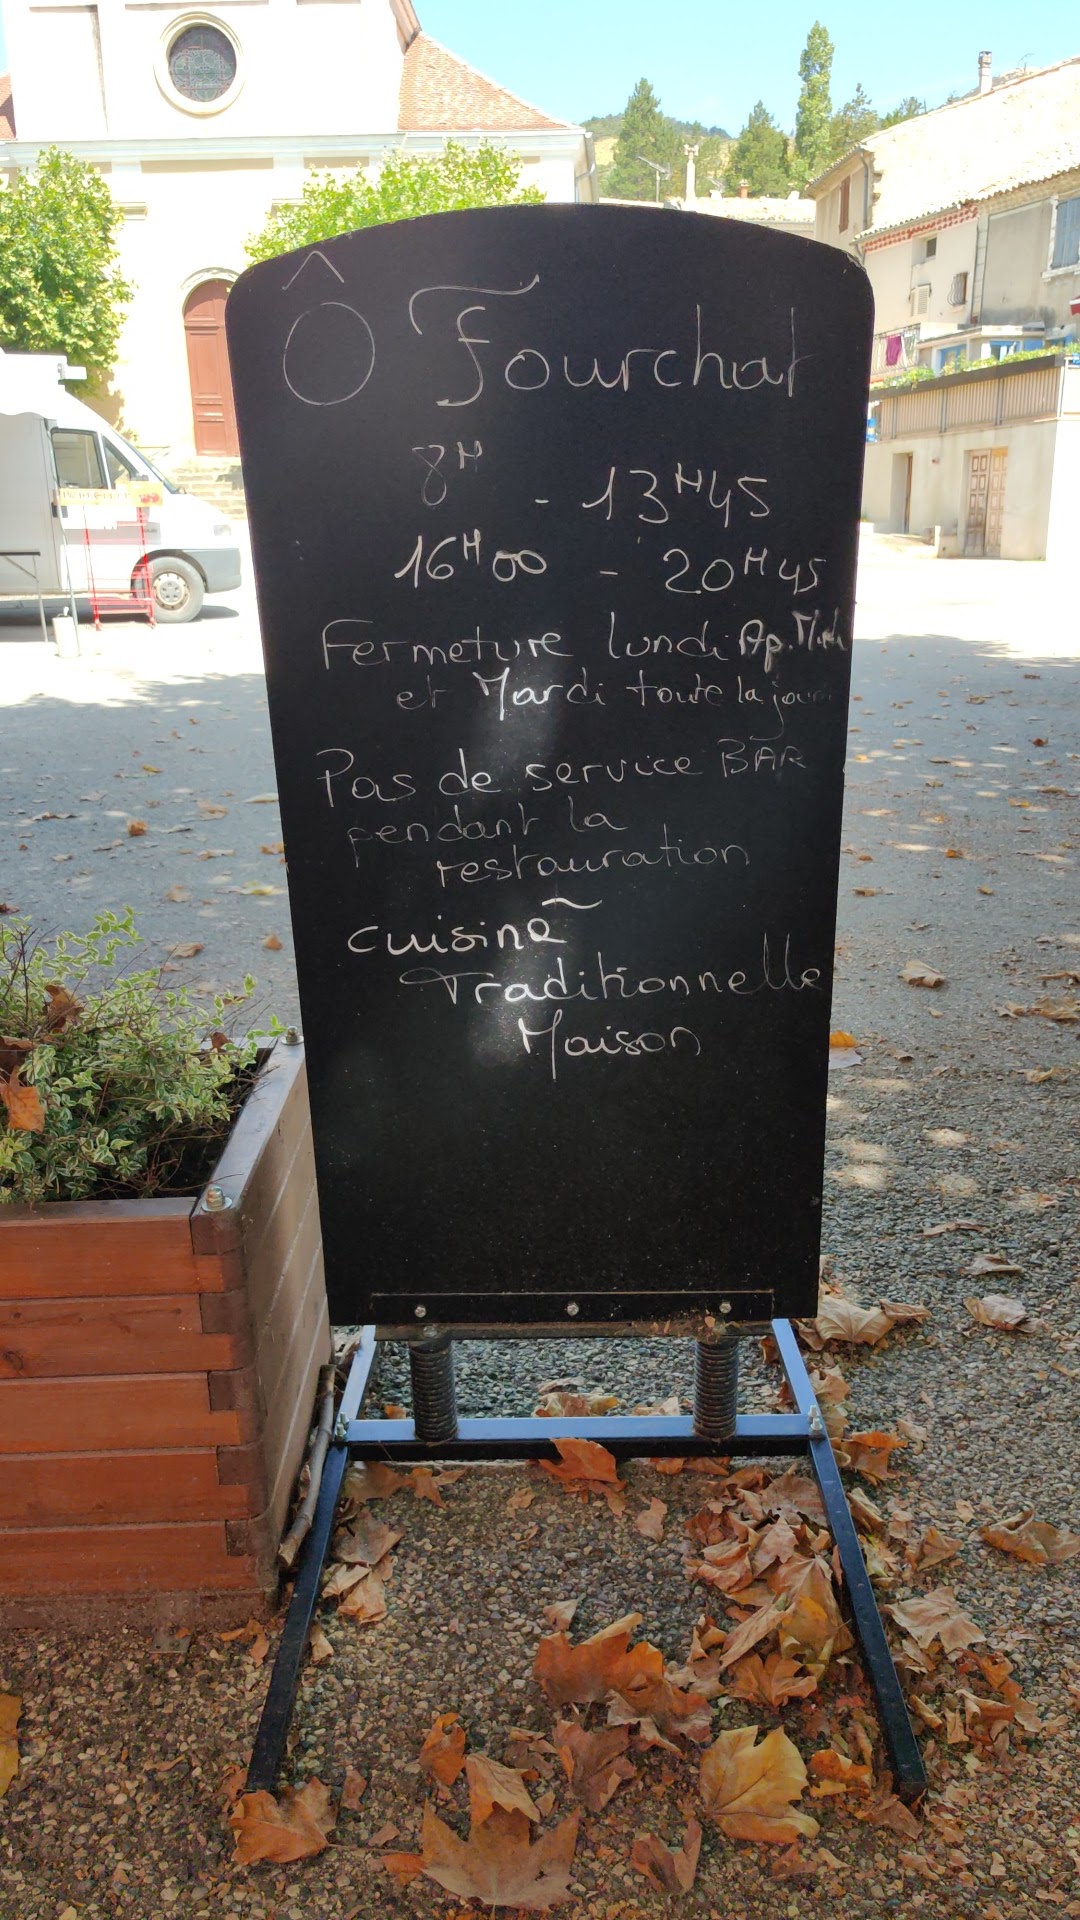 Ô Fourchat
8H - 13H45
16H00 - 20H45
Fermeture lundi Ap. Midi
et Mardi toute la
Pas de service BAR
pendant la
restauration
cuisine
Traditionnelle
Maison